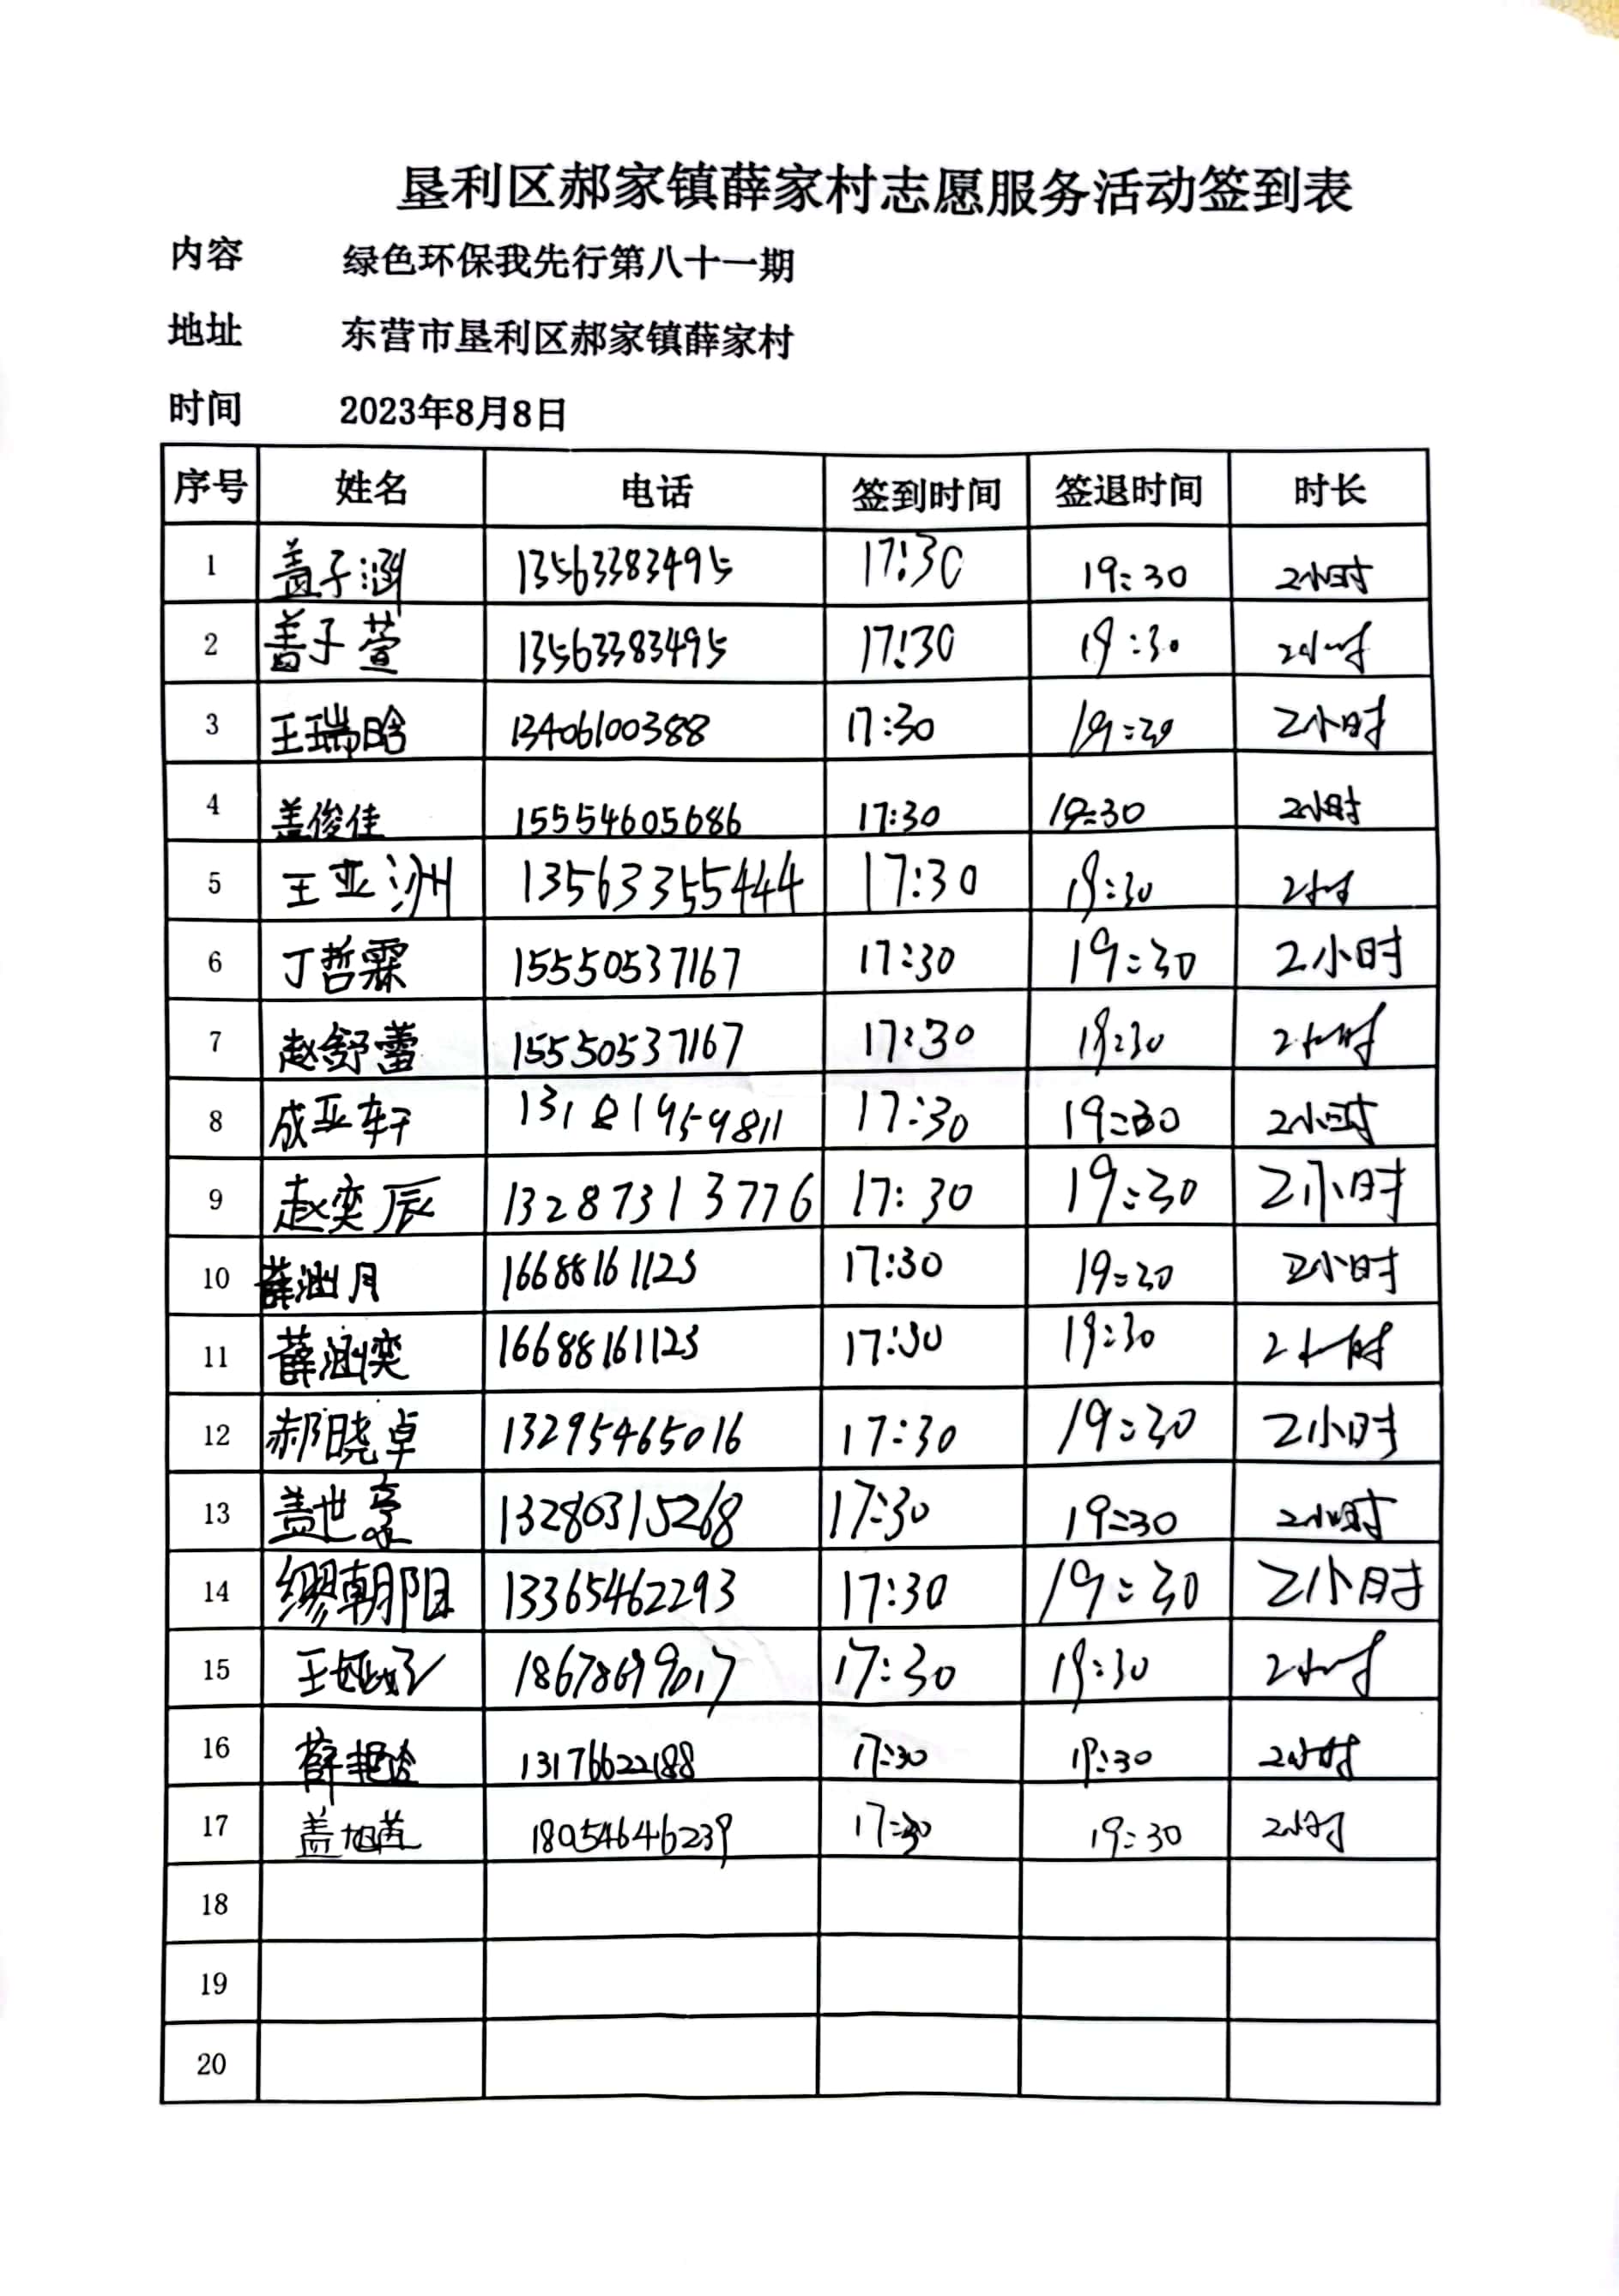 垦利区郝家镇薛家村志愿服务活动签到表
内容 绿色环保我先行第八十一期
地址 东营市垦利区郝家镇薛家村
时间 2023年8月8日
序号 姓名 电话 签到时间 签退时间 时长
1 盖子涵 13563383495 17:30 19:30 2小时
2 盖子萱 13563383495 17:30 19:30 2小时
3 王瑞晗 13406100388 17:30 19:30 2小时
4 盖俊佳 15554605686 17:30 19:30 2小时
5 王亚洲 13563355444 17:30 19:30 2小时
6 丁哲霖 15550537167 17:30 19:30 2小时
7 赵舒蕾 15550537167 17:30 19:30 2小时
8 成亚轩 13181959811 17:30 19:30 2小时
9 赵奕辰 13287313776 17:30 19:30 2小时
10 薛涵月 16688161123 17:30 19:30 2小时
11 薛涵奕 16688161123 17:30 19:30 2小时
12 郝晓卓 13295465016 17:30 19:30 2小时
13 盖世豪 13280315268 17:30 19:30 2小时
14 缪朝阳 13365462293 17:30 19:30 2小时
15 17:30 19:30 2小时
16 13176622188 17:30 19:30 2小时
17 18054646239 17:30 19:30 2小时
18
19
20